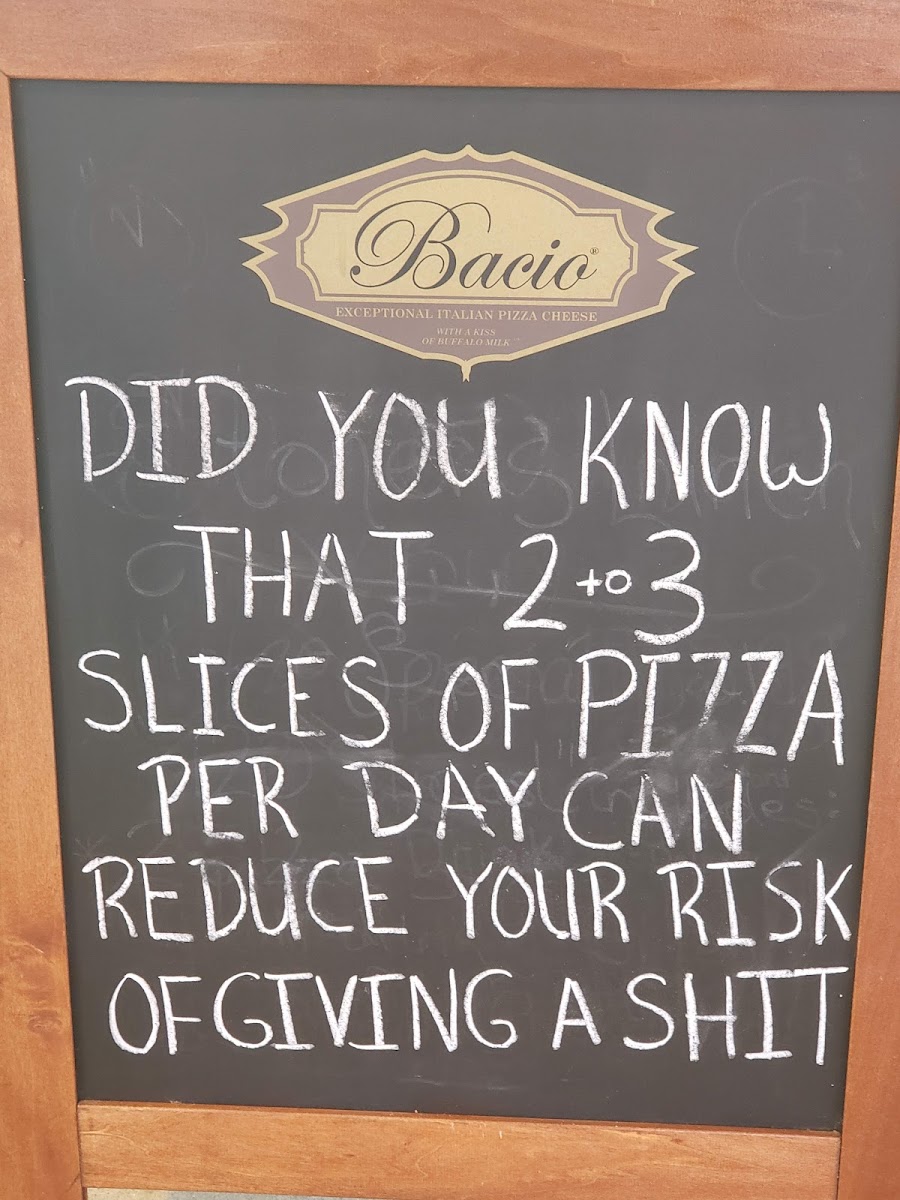 Bacio®
EXCEPTIONAL ITALIAN PIZZA CHEESE
WITH A KISS
OF BUFFALO MILK™
DID YOU KNOW
THAT 2 to 3
SLICES OF PIZZA
PER DAY CAN
REDUCE YOUR RISK
OF GIVING A SHIT